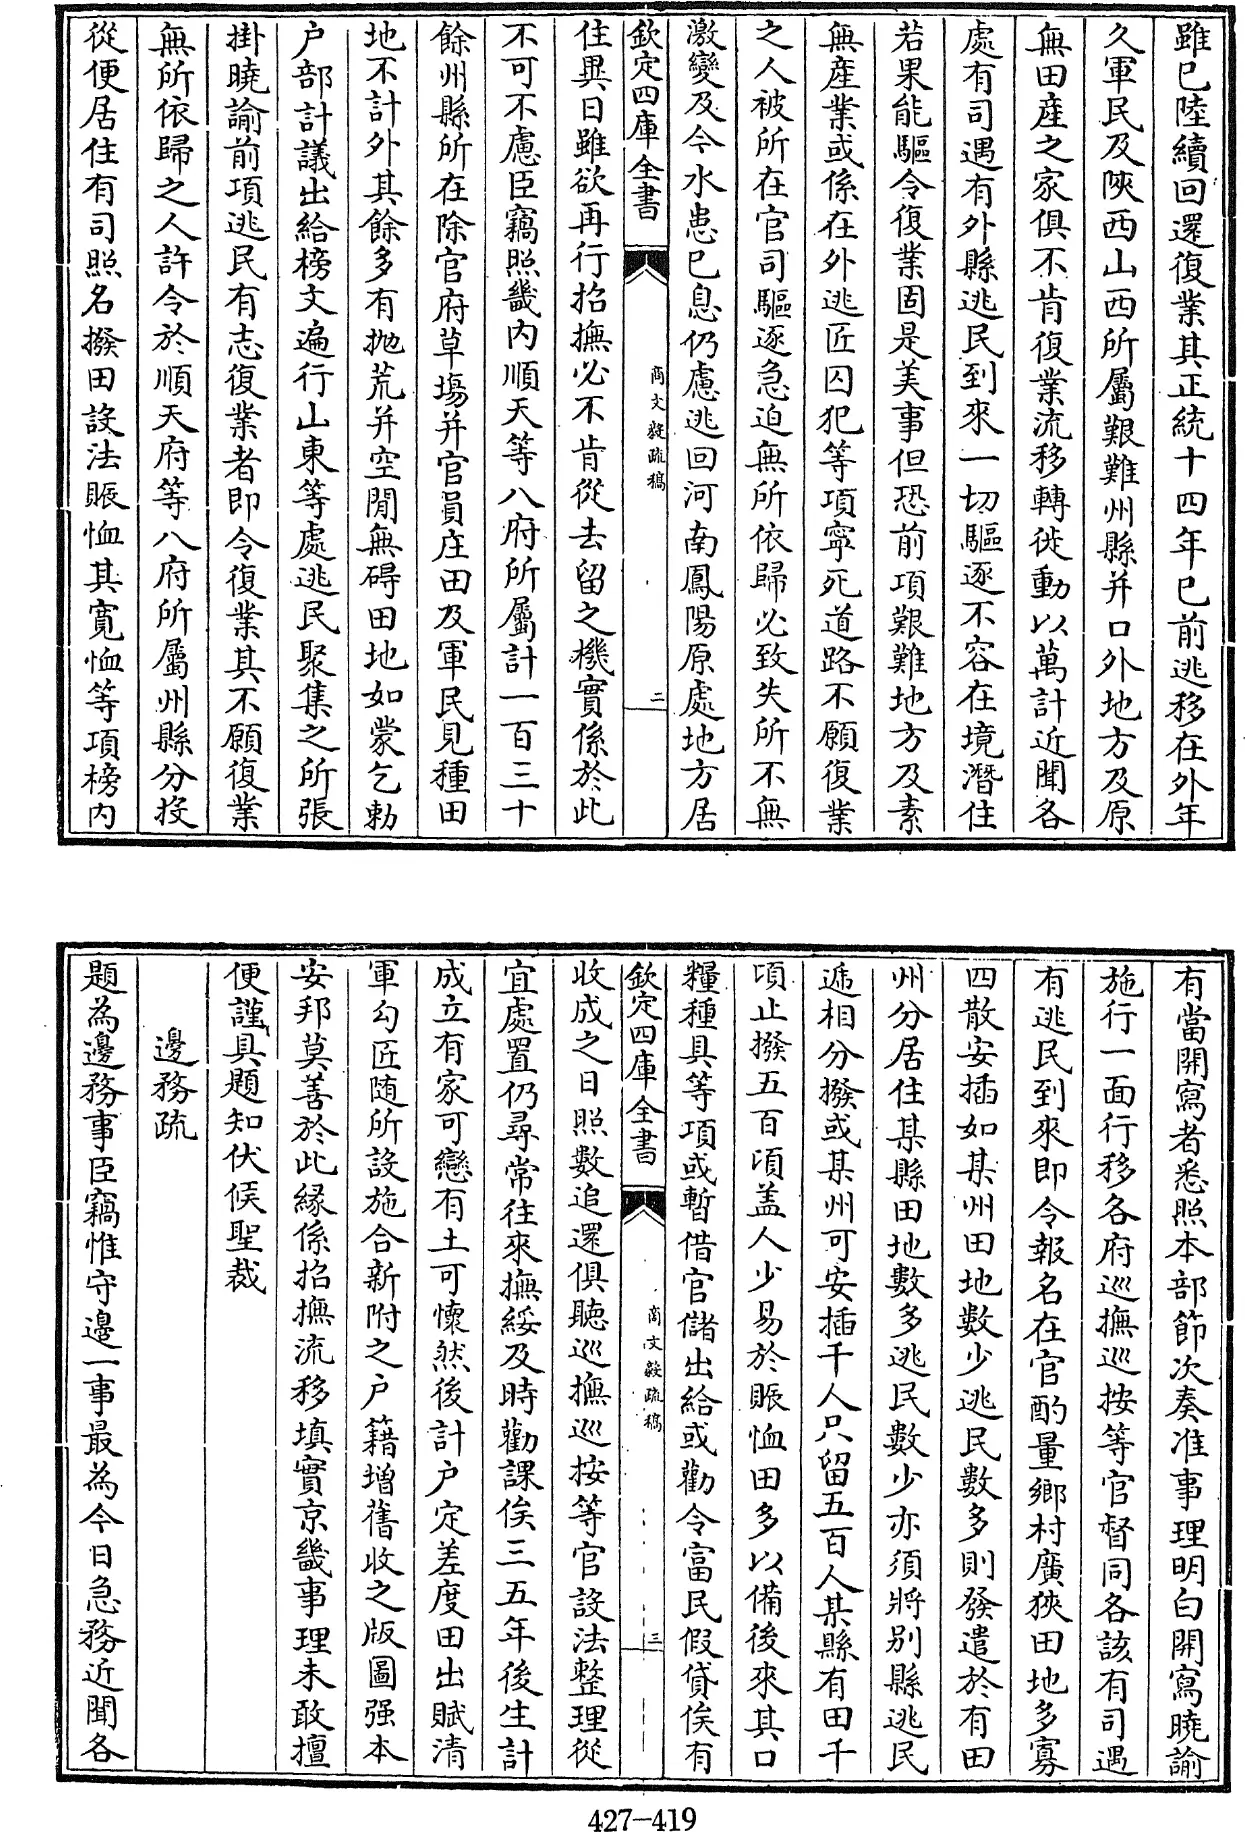 雖已陸續回還復業其正統十四年已前逃移在外年
久軍民及陜西山西所屬艱難州縣并口外地方及原
無田産之家俱不肯復業流移轉徙動以萬計近聞各
處有司遇有外縣逃民到來一切驅逐不容在境潛住
若果能驅令復業固是美事但恐前項艱難地方及素
無産業或係在外逃匠囚犯等項寧死道路不願復業
之人被所在官司驅逐急迫無所依歸必致失所不無
激變及今水患已息仍慮逃回河南鳳陽原處地方居
欽定四庫全書
商文毅疏稿
二
住異日雖欲再行招撫必不肯從去留之機實係於此
不可不慮臣竊照畿内順天等八府所屬計一百三十
餘州縣所在除官府草塲并官員庄田及軍民見種田
地不計外其餘多有抛荒并空閒無碍田地如蒙乞勅
户部計議出給榜文遍行山東等處逃民聚集之所張
掛曉諭前項逃民有志復業者即令復業其不願復業
無所依歸之人許令於順天府等八府所屬州縣分投
從便居住有司照名撥田設法賑恤其寛恤等項榜内
有當開寫者悉照本部節次奏准事理明白開寫曉諭
施行一面行移各府巡撫巡按等官督同各該有司遇
有逃民到來即令報名在官酌量鄉村廣狹田地多寡
四散安插如某州田地數少逃民數多則發遣於有田
州分居住某縣田地數多逃民數少亦須將别縣逃民
遞相分撥或某州可安插千人只留五百人某縣有田千
頃止撥五百頃盖人少易於賑恤田多以備後來其口
糧種具等項或暫借官儲出給或勸令富民假貸俟有
欽定四庫全書
商文毅疏稿
三
收成之日照數追還俱聽巡撫巡按等官設法整理從
宜處置仍尋常往來撫綏及時勸課俟三五年後生計
成立有家可戀有土可懷然後計户定差度田出賦清
軍勾匠随所設施合新附之户籍增舊收之版圖强本
安邦莫善於此縁係招撫流移填實京畿事理未敢擅
便謹具題知伏候聖裁
邊務疏
題為邊務事臣竊惟守邊一事最為今日急務近聞各
427-419